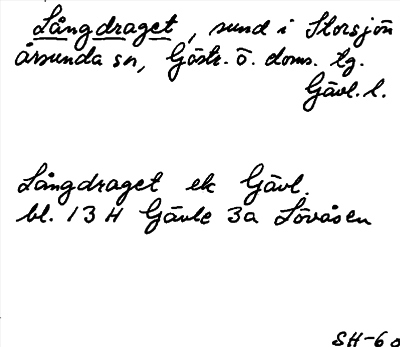 Långdraget, sund i Storsjön
Årsunda sn, Gästr. ö. doms. tg.
Gävl. l.
Långdraget ek Gävl.
bl. 13 H Gävle 3a Lövåsen
SH-60